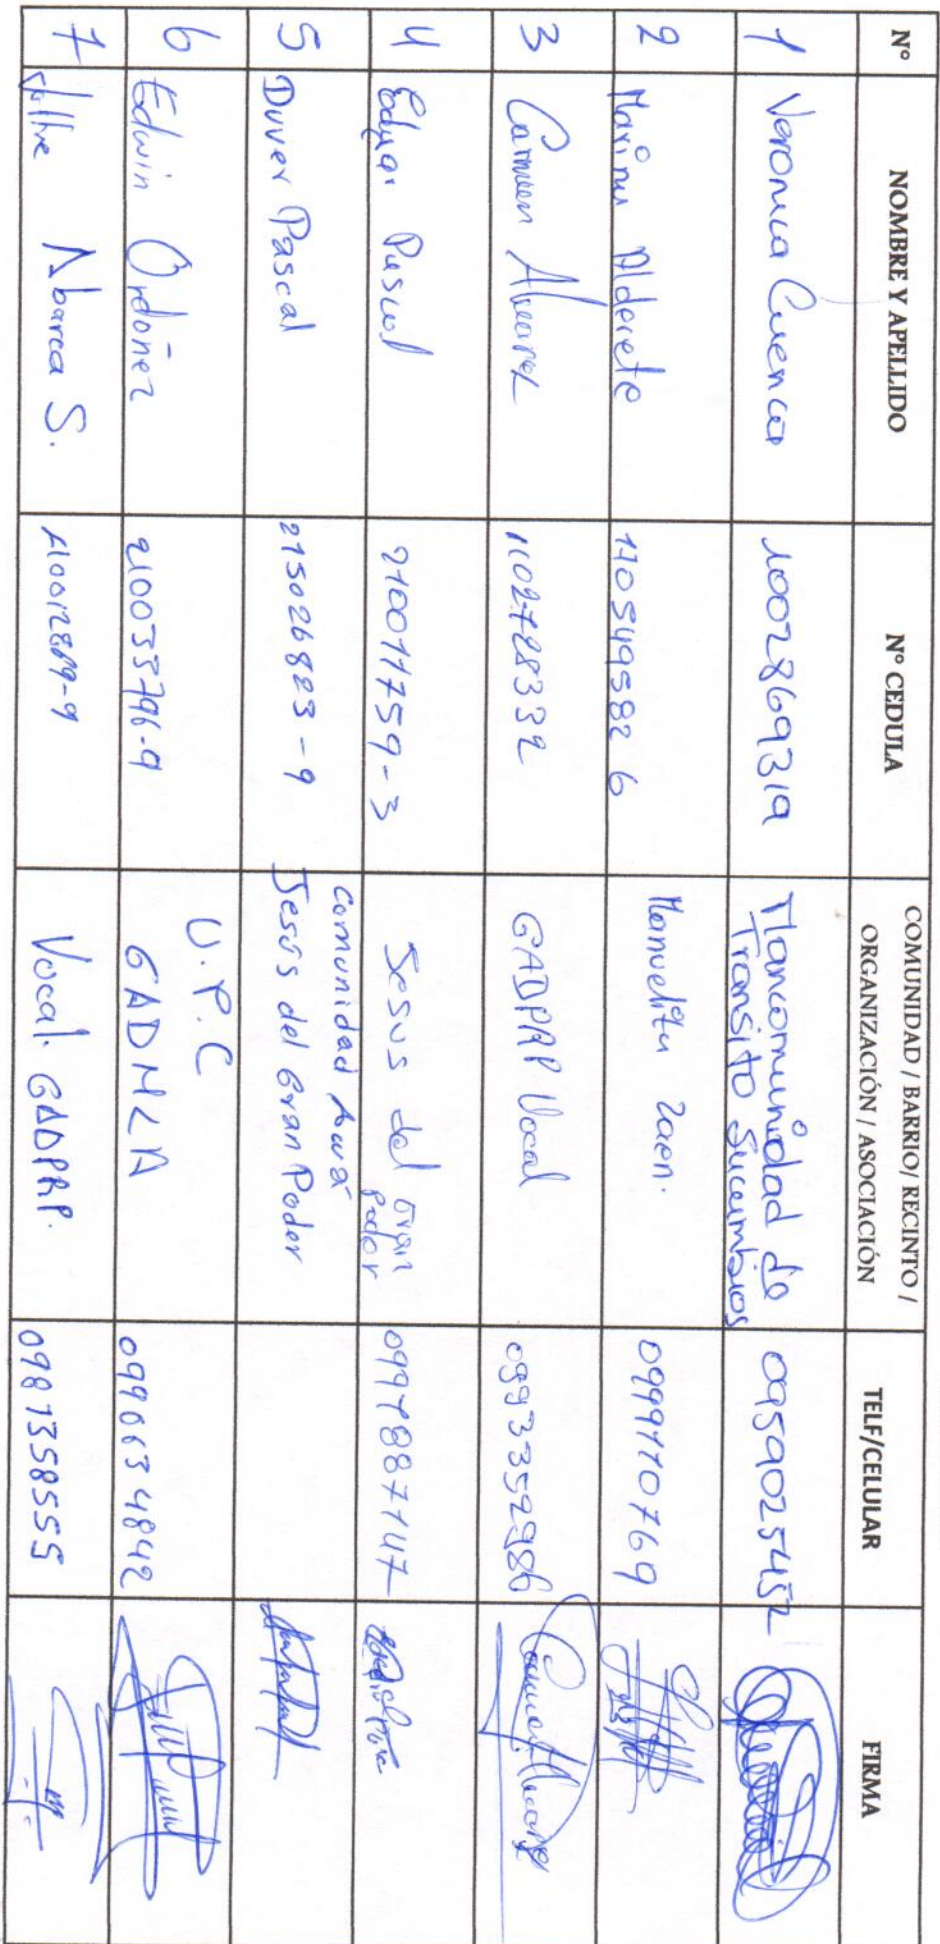 Nº NOMBRE Y APELLIDO Nº CEDULA COMUNIDAD / BARRIO/ RECINTO / ORGANIZACIÓN / ASOCIACIÓN TELF/CELULAR FIRMA
1 Veronica Cuenca 1002869319 Mancomunidad de Transito Sucumbios 0959025452
2 Marina Alderete 110549582 6 Manuelita Zaen. 0999110769
3 Carmen Alvarez 1102728332 GADPRP Vocal 0993352986
4 Edgar Pascal 210011759-3 Jesus del Gran poder 0997887147
5 Duver Pascal 215026823-9 Comunidad Awá Jesús del Gran Poder
6 Edwin Ordoñez 210033796-9 U.P.C GADMLA 0990634842
7 Abarca S. Vocal. GADPRP. 0981358555